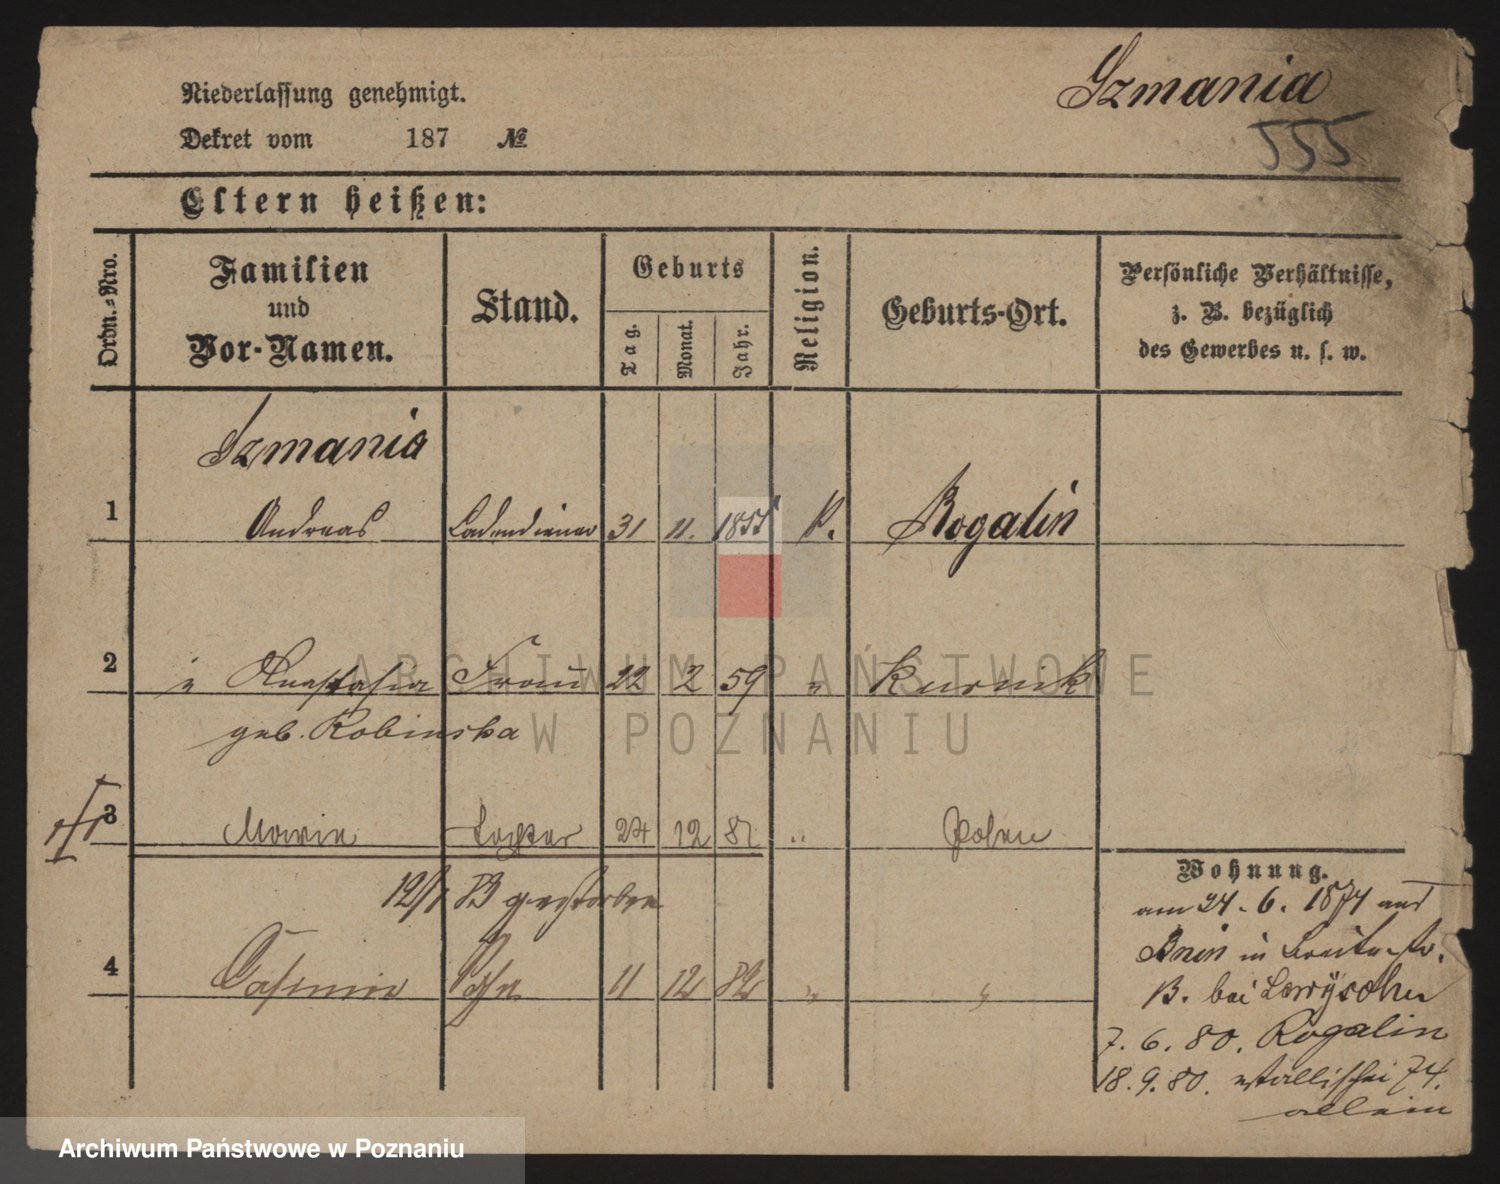 Niederlassung genehmigt.
Szmania
Dekret vom 187 №
555
Eltern heißen:
Ordn.-Nro. Familien und Vor-Namen. Stand. Geburts Tag. Monat. Jahr. Religion. Geburts-Ort. Persönliche Verhältnisse, z. B. bezüglich des Gewerbes u. s. w.
Szmania
1 Andreas Ladendiener 31 11. 1855 K. Rogalin
2 Anastasia Frau 22 2 59 " Kurnik
geb. Robinska
3 Maria Tochter 24 12 81 " Posen
12/1 83 gestorben
4 Casimir Sohn 11 12 82 " "
Wohnung.
am 24. 6. 1874 aus
Bnin in Breitestr.
B. bei
7. 6. 80. Rogalin
18. 9. 80. Wallischei 74.
allein
ARCHIWUM PAŃSTWOWE
W POZNANIU
Archiwum Państwowe w Poznaniu